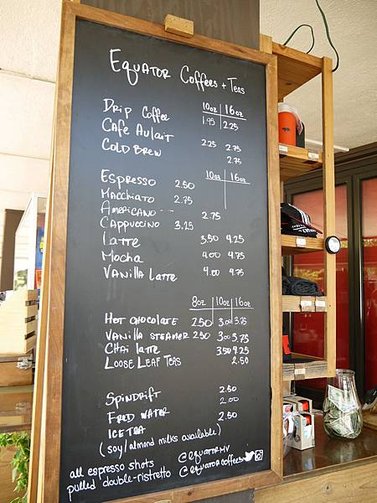 Equator Coffees + Teas
10oz 16oz
Drip Coffee 1.95 2.25
Cafe Aulait 2.25 2.75
Cold Brew 2.75
10oz 16oz
Espresso 2.50
Macchiato 2.75
Americano 2.75
Cappuccino 3.25
Latte 3.50 4.25
Mocha 4.00 4.75
Vanilla Latte 4.00 4.75
8oz 10oz 16oz
Hot Chocolate 2.50 3.00 3.75
Vanilla Steamer 2.50 3.00 3.75
Chai Latte 3.50 4.25
Loose Leaf Teas 2.50
Spindrift 2.50
Fred Water 2.00
Ice Tea 2.50
(soy/almond milks available)
all espresso shots
pulled double-ristretto
@equatorMV
@equatorcoffees